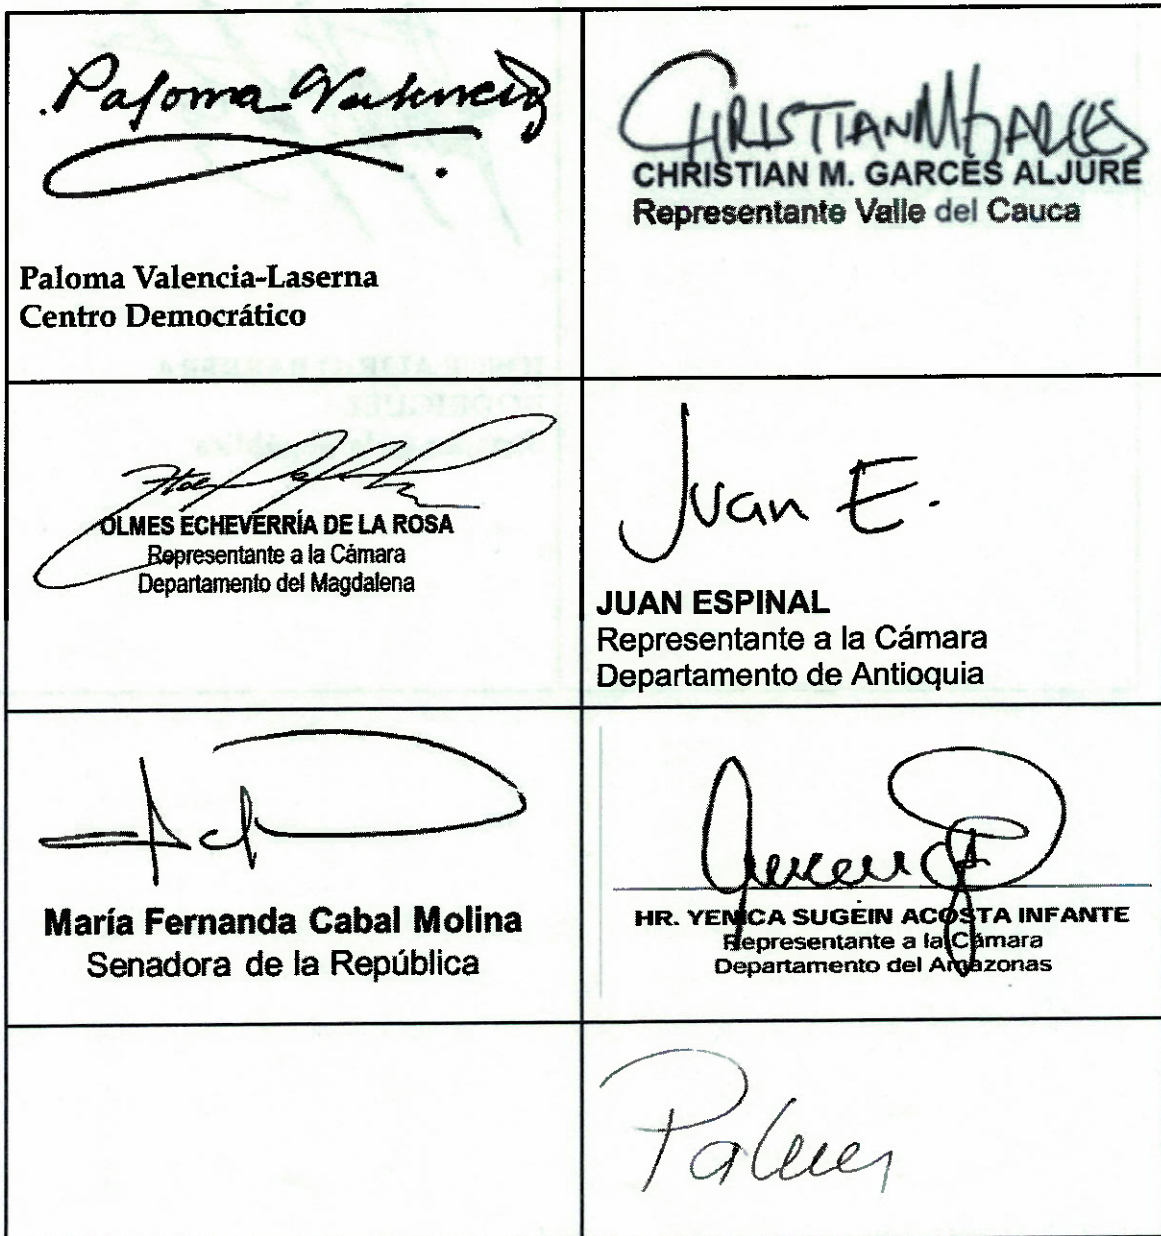 Paloma Valencia
Paloma Valencia-Laserna
Centro Democrático
CHRISTIAN M GARCES
CHRISTIAN M. GARCÉS ALJURE
Representante Valle del Cauca
OLMES ECHEVERRÍA DE LA ROSA
Representante a la Cámara
Departamento del Magdalena
Juan E.
JUAN ESPINAL
Representante a la Cámara
Departamento de Antioquia
María Fernanda Cabal Molina
Senadora de la República
HR. YENICA SUGEIN ACOSTA INFANTE
Representante a la Cámara
Departamento del Amazonas